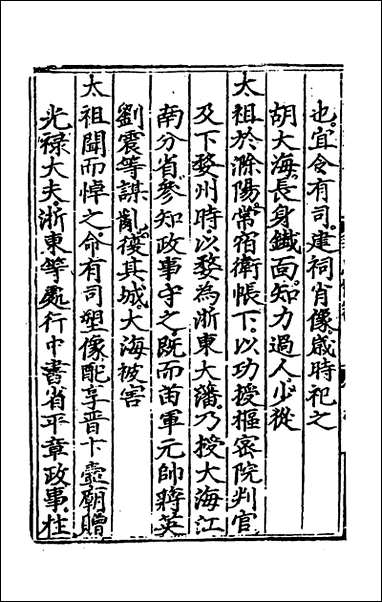 也宜令有司建祠肖像歲時祀之
胡大海長身鐵面知力過人少從
太祖於滁陽常宿衛帳下以功授樞密院判官
及下婺州時以婺為浙東大藩乃授大海江
南分省參知政事守之既而苗軍元帥蔣英
劉震等謀亂復其城大海被害
太祖聞而悼之命有司塑像配享晉卞壼廟贈
光祿大夫浙東等處行中書省平章政事柱